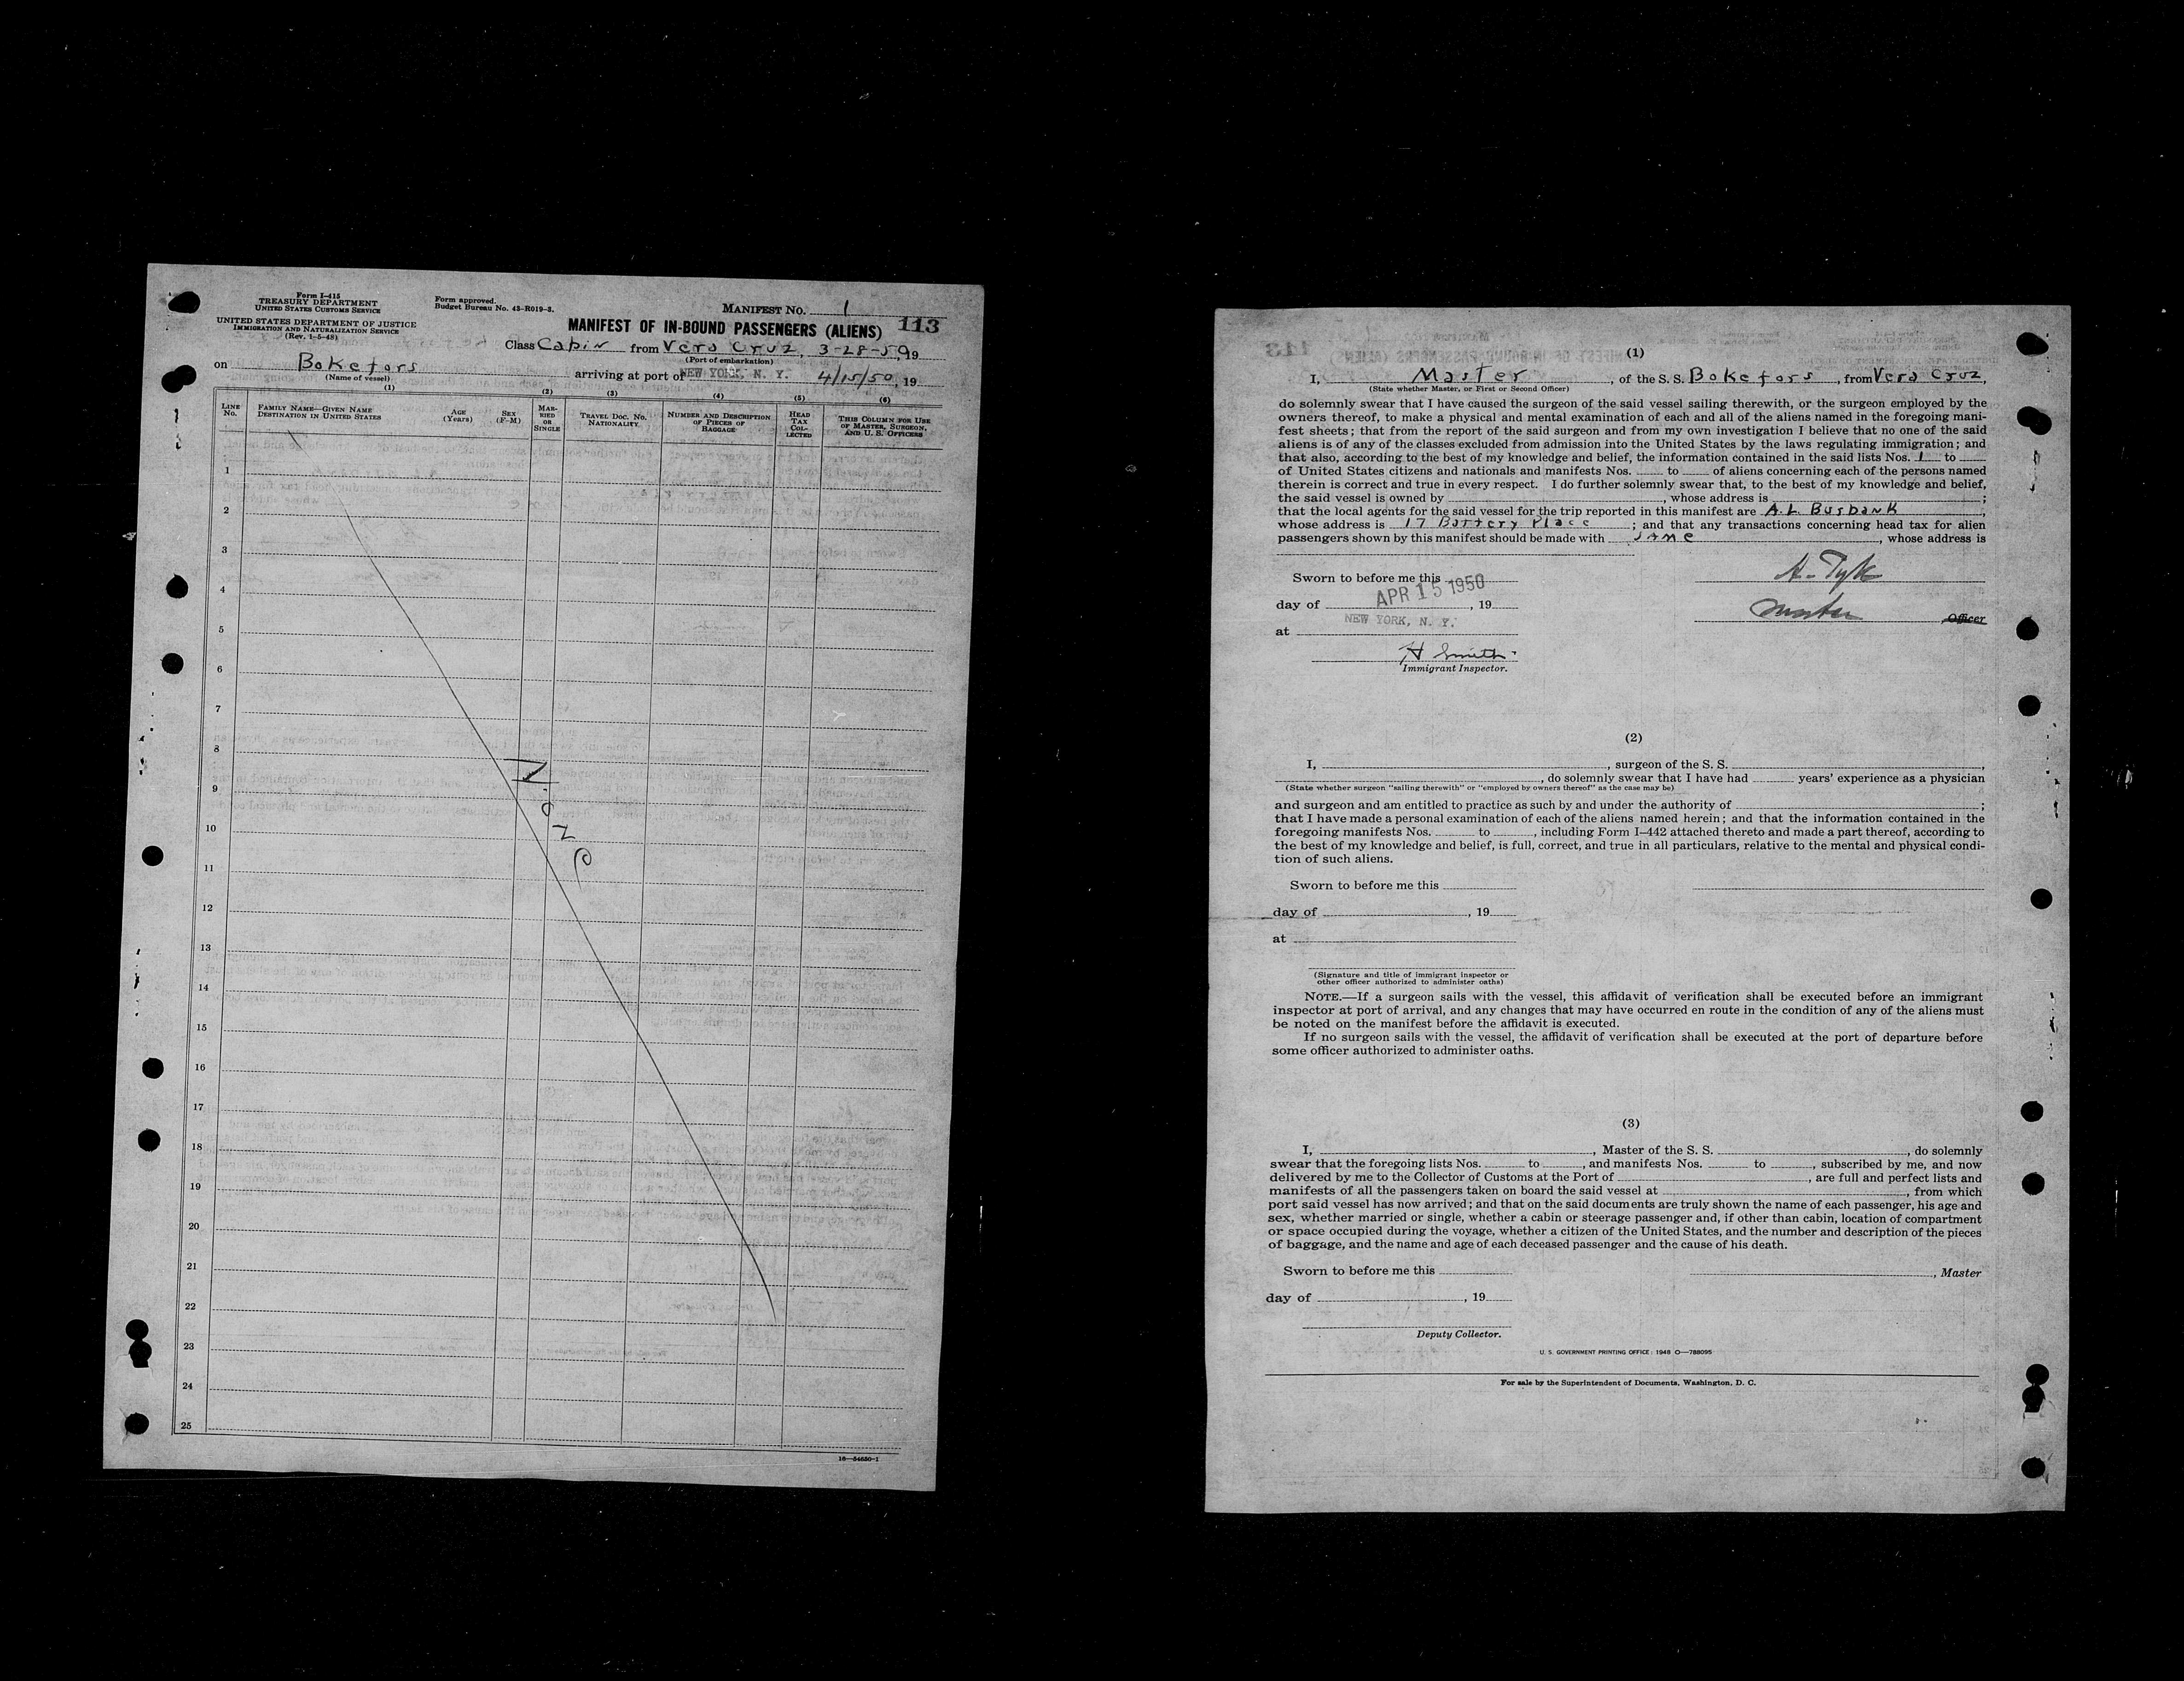 Form I-415
TREASURY DEPARTMENT
UNITED STATES CUSTOMS SERVICE
UNITED STATES DEPARTMENT OF JUSTICE
IMMIGRATION AND NATURALIZATION SERVICE
(Rev. 1-5-48)
Form approved.
Budget Bureau No. 43-R019-3.
MANIFEST No. 1
113
MANIFEST OF IN-BOUND PASSENGERS (ALIENS)
Class Cabin from Vera Cruz, 3-28-50, 19
(Port of embarkation)
on Bokefors arriving at port of NEW YORK, N. Y. 4/15/50, 19
(Name of vessel)
(1) (2) (3) (4) (5) (6)
LINE No.
FAMILY NAME—GIVEN NAME
DESTINATION IN UNITED STATES
AGE (Years)
SEX (F-M)
MARRIED OR SINGLE
TRAVEL DOC. No.
NATIONALITY
NUMBER AND DESCRIPTION OF PIECES OF BAGGAGE
HEAD TAX COLLECTED
THIS COLUMN FOR USE OF MASTER, SURGEON, AND U. S. OFFICERS
1
2
3
4
5
6
7
8
9
10
11
12
13
14
15
16
17
18
19
20
21
22
23
24
25
16—54650-1
(1)
I, Master, of the S. S. Bokefors, from Vera Cruz,
(State whether Master, or First or Second Officer)
do solemnly swear that I have caused the surgeon of the said vessel sailing therewith, or the surgeon employed by the
owners thereof, to make a physical and mental examination of each and all of the aliens named in the foregoing mani-
fest sheets; that from the report of the said surgeon and from my own investigation I believe that no one of the said
aliens is of any of the classes excluded from admission into the United States by the laws regulating immigration; and
that also, according to the best of my knowledge and belief, the information contained in the said lists Nos. 1 to
of United States citizens and nationals and manifests Nos. to of aliens concerning each of the persons named
therein is correct and true in every respect. I do further solemnly swear that, to the best of my knowledge and belief,
the said vessel is owned by , whose address is ;
that the local agents for the said vessel for the trip reported in this manifest are A. L. Burbank,
whose address is 17 Battery Place; and that any transactions concerning head tax for alien
passengers shown by this manifest should be made with same, whose address is
Sworn to before me this
day of APR 15 1950, 19
at NEW YORK, N. Y.
H Smith
Immigrant Inspector.
Master Officer
(2)
I, , surgeon of the S. S. ,
, do solemnly swear that I have had years' experience as a physician
(State whether surgeon "sailing therewith" or "employed by owners thereof" as the case may be)
and surgeon and am entitled to practice as such by and under the authority of ;
that I have made a personal examination of each of the aliens named herein; and that the information contained in the
foregoing manifests Nos. to , including Form I-442 attached thereto and made a part thereof, according to
the best of my knowledge and belief, is full, correct, and true in all particulars, relative to the mental and physical condi-
tion of such aliens.
Sworn to before me this
day of , 19
at
(Signature and title of immigrant inspector or
other officer authorized to administer oaths)
NOTE.—If a surgeon sails with the vessel, this affidavit of verification shall be executed before an immigrant
inspector at port of arrival, and any changes that may have occurred en route in the condition of any of the aliens must
be noted on the manifest before the affidavit is executed.
If no surgeon sails with the vessel, the affidavit of verification shall be executed at the port of departure before
some officer authorized to administer oaths.
(3)
I, , Master of the S. S. , do solemnly
swear that the foregoing lists Nos. to , and manifests Nos. to , subscribed by me, and now
delivered by me to the Collector of Customs at the Port of , are full and perfect lists and
manifests of all the passengers taken on board the said vessel at , from which
port said vessel has now arrived; and that on the said documents are truly shown the name of each passenger, his age and
sex, whether married or single, whether a cabin or steerage passenger and, if other than cabin, location of compartment
or space occupied during the voyage, whether a citizen of the United States, and the number and description of the pieces
of baggage, and the name and age of each deceased passenger and the cause of his death.
Sworn to before me this
, Master
day of , 19
Deputy Collector.
U. S. GOVERNMENT PRINTING OFFICE : 1948 O—788095
For sale by the Superintendent of Documents, Washington, D. C.